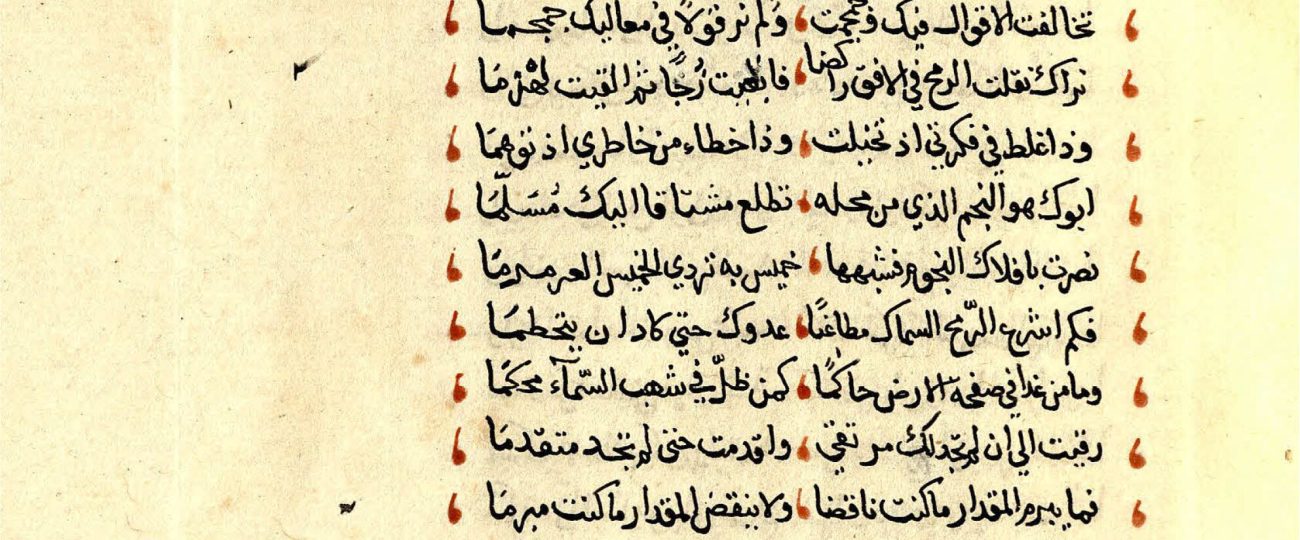 تخالفت الاقوال فيك وجمجمت ولم نر قولا في معاليك جمجما
نراك نقلت الرمح في الافق راكضا زُجًا ثم القيت لهذما
وذا غلط في فكرتي اذ تخيلت وذا خطاء من خاطري اذ توهما
ابوك هو النجم الذي من محله تطلع مشتاقا اليك مُسَلِّمَا
نصرت بافلاك النجوم فشبهها خميس به تردي الخميس العرمرما
فكم اشرع الرّمح السماك مطاعنًا عدوك حتي كاد ان يتحطما
وما من غدا في صفحة الارض حاكمًا كمن ظلّ في شهب السّمآء محكمَا
رقيت الي ان لم تجد لك مرتقي واقدمت حتى لم تجد متقدمَا
فما يبرم المقدار ما كنت ناقضا ولا ينقض المقدار ما كنت مبرمَا